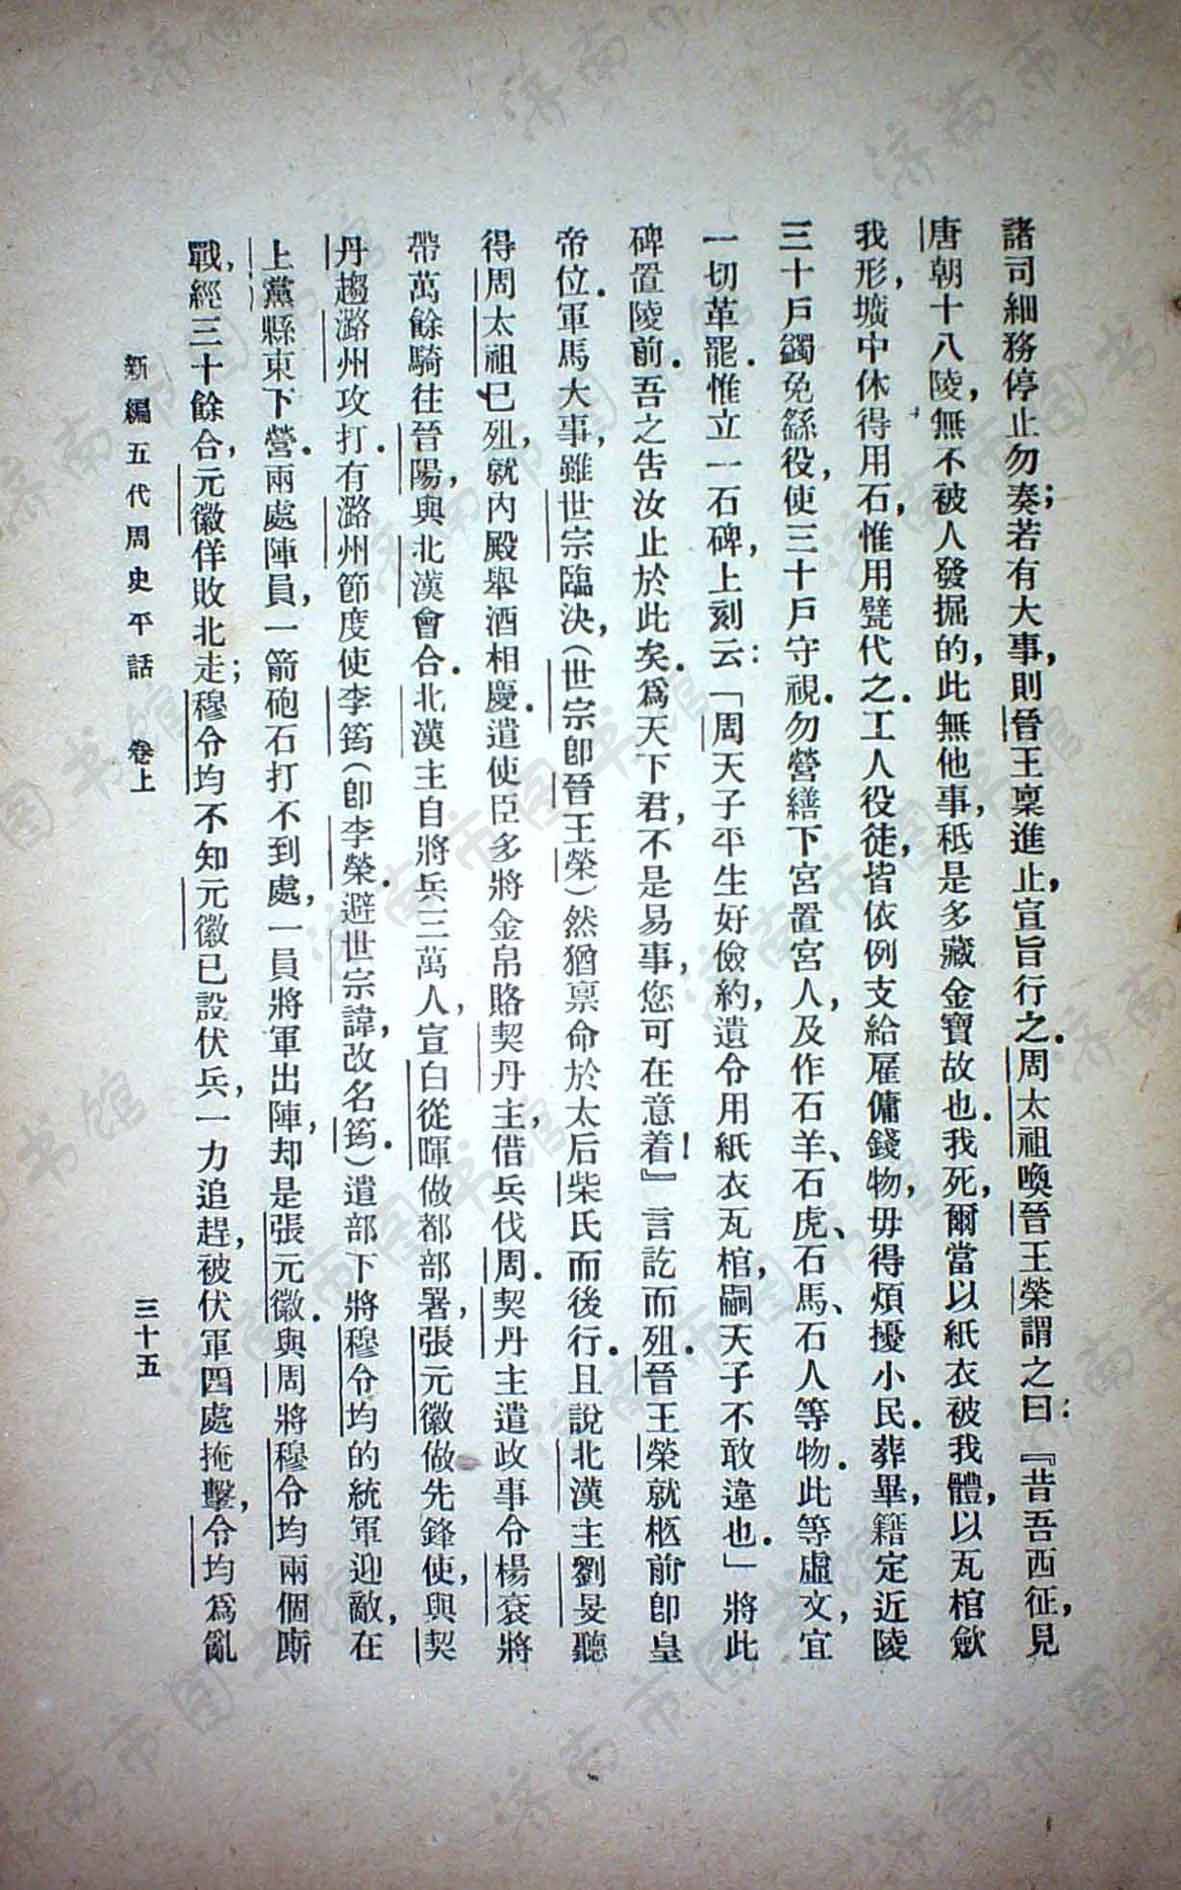 諸司細務停止勿奏；若有大事，則晉王稟進止，宣旨行之．周太祖喚晉王榮謂之曰：『昔吾西征，見
唐朝十八陵，無不被人發掘的，此無他事，秖是多藏金寶故也．我死，爾當以紙衣被我體，以瓦棺歛
我形，壙中休得用石，惟用甓代之．工人役徒，皆依例支給雇傭錢物，毋得煩擾小民．葬畢，籍定近陵
三十戶蠲免繇役，使三十戶守視．勿營繕下宮置宮人，及作石羊、石虎、石馬、石人等物．此等虛文，宜
一切革罷．惟立一石碑，上刻云：「周天子平生好儉約，遺令用紙衣瓦棺，嗣天子不敢違也．」將此
碑置陵前．吾之告汝止於此矣．爲天下君，不是易事，您可在意着！』言訖而殂．晉王榮就柩前卽皇
帝位．軍馬大事，雖世宗臨決，（世宗卽晉王榮）然猶禀命於太后柴氏而後行．且說北漢主劉旻聽
得周太祖已殂，就內殿舉酒相慶．遣使臣多將金帛賂契丹主，借兵伐周．契丹主遣政事令楊袞將
帶萬餘騎往晉陽，與北漢會合．北漢主自將兵三萬人，宣白從暉做都部署，張元徽做先鋒使，與契
丹趨潞州攻打．有潞州節度使李筠（卽李榮．避世宗諱，改名筠．）遣部下將穆令均的統軍迎敵，在
上黨縣東下營．兩處陣員，一箭砲石打不到處，一員將軍出陣，却是張元徽．與周將穆令均兩個廝
戰，經三十餘合，元徽佯敗北走；穆令均不知元徽已設伏兵，一力追趕，被伏軍四處掩擊，令均爲亂
新編五代周史平話　卷上　三十五
济南市图书馆